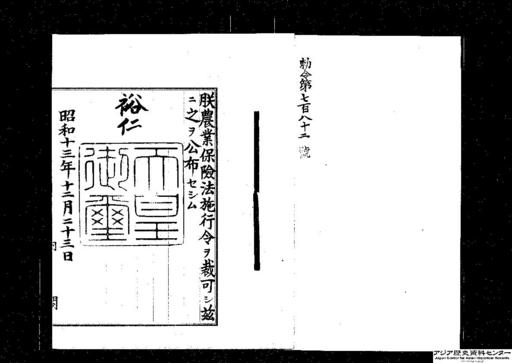 勅令第七百八十二號
朕農業保險法施行令ヲ裁可シ茲
ニ之ヲ公布セシム
裕仁
天皇御璽
昭和十三年十二月二十三日
アジア歴史資料センター
Japan Center for Asian Historical Records